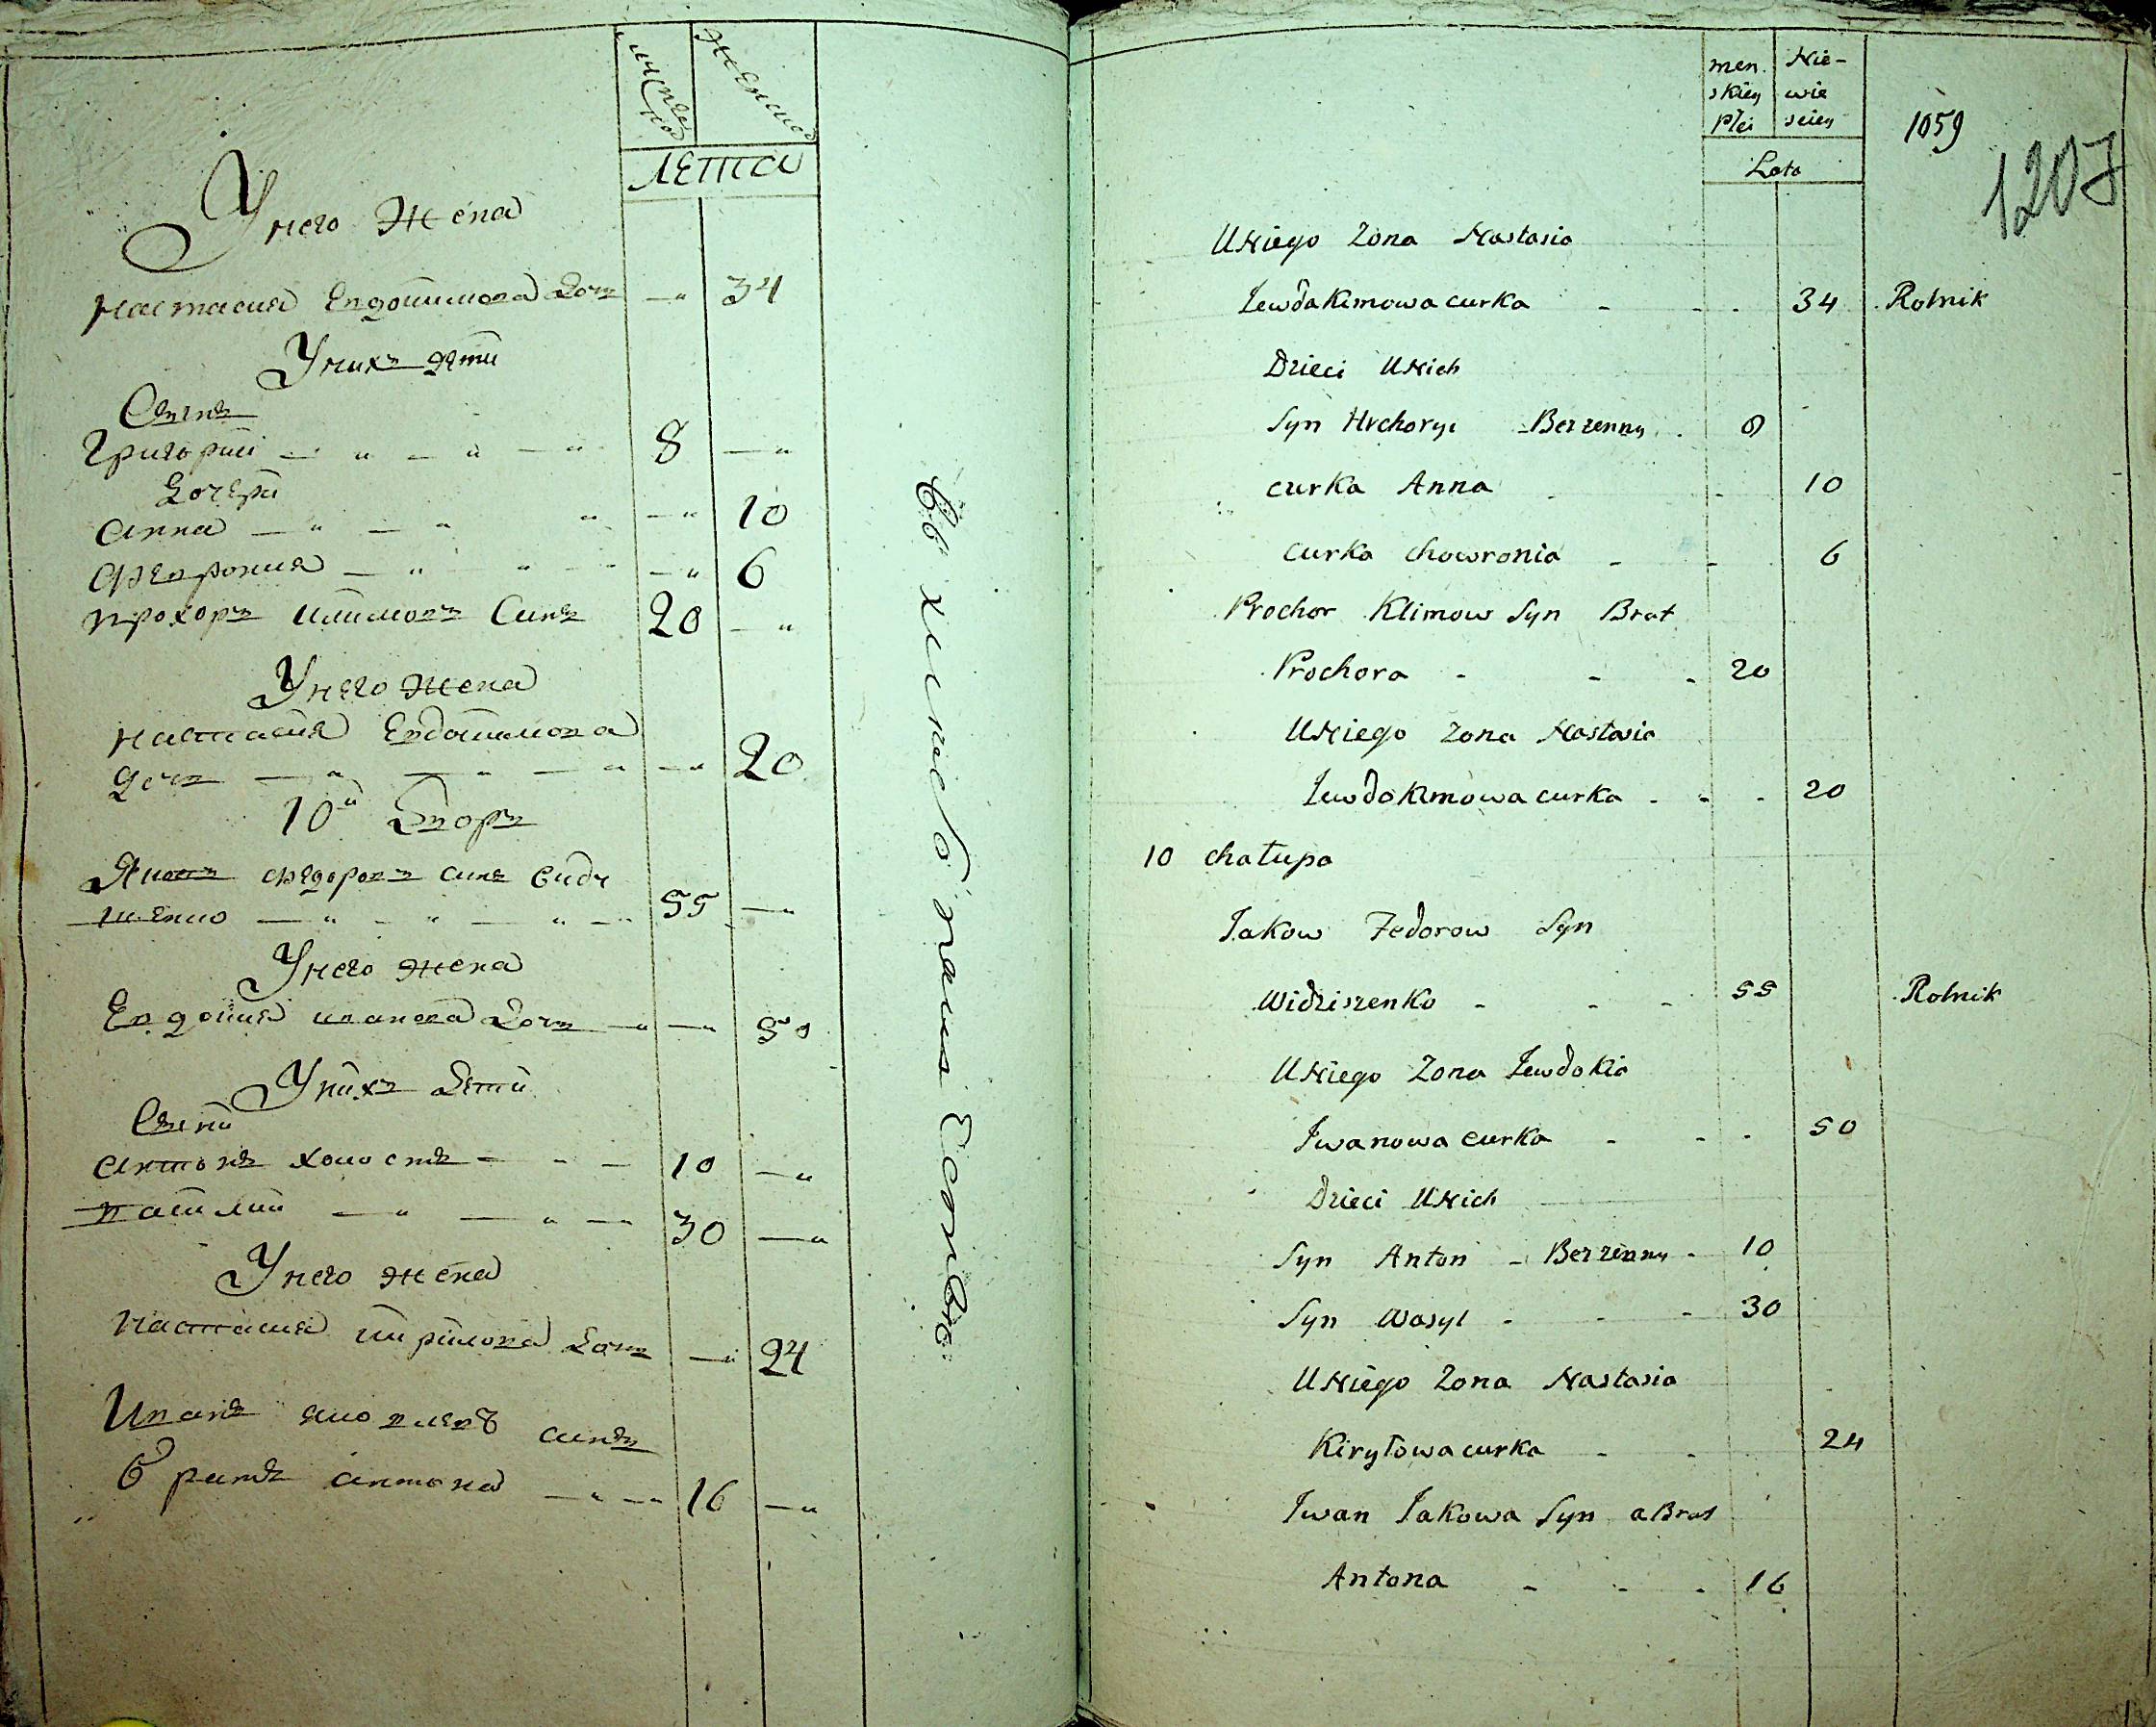 мужеска
женска
Лета
У него жена
Настасия Евдокимова дочь — „ 34
У них дети
Сынъ
Григорий — „ — „ — „ 8 — „
Дочери
Анна — „ — „ „ — „ 10
Феврония — „ „ — „ 6
Прохоръ Климовъ Синъ 20 — „
У него жена
Настасия Евдокимова
дочь — „ — „ — „ — „ 20
10й Дворъ
Яковъ Федоровъ синъ Види
шенко — „ — „ — „ — 55 — „
У него жена
Евдокия Иванова дочь — „ — „ 50
У нихъ дети
Сыни
Антонъ холостъ — - — 10 — „
Василий — „ — „ — 30 — „
У него жена
Настасия Кирилова дочь — „ 24
Иванъ Яковлевъ синъ
Братъ Антона — „ — 16 — „
men.
skiey
Płci
Nie-
wie
sciey
Lata
1059
1207
U Niego Zona Nastasia
Jewdakimowa curka - - - 34 Rolnik
Dzieci U Nich
Syn Hrehoryi - Bezzenny . 8
curka Anna - - 10
curka Chowronia - - 6
Prochor Klimow Syn Brat
Prochora - - - 20
U Niego Zona Nastasia
Jewdokimowa curka - - - 20
10 chałupa
Jakow Fedorow Syn
Widziszenko - - - 55 Rolnik
U Niego Zona Jewdokia
Iwanowa curka - - - 50
Dzieci U Nich
Syn Anton - Bezzenny - 10
Syn Wasyl - - - 30
U Niego Zona Nastasia
Kiryłowa curka - - 24
Iwan Jakowa Syn a Brat
Antona - - - 16